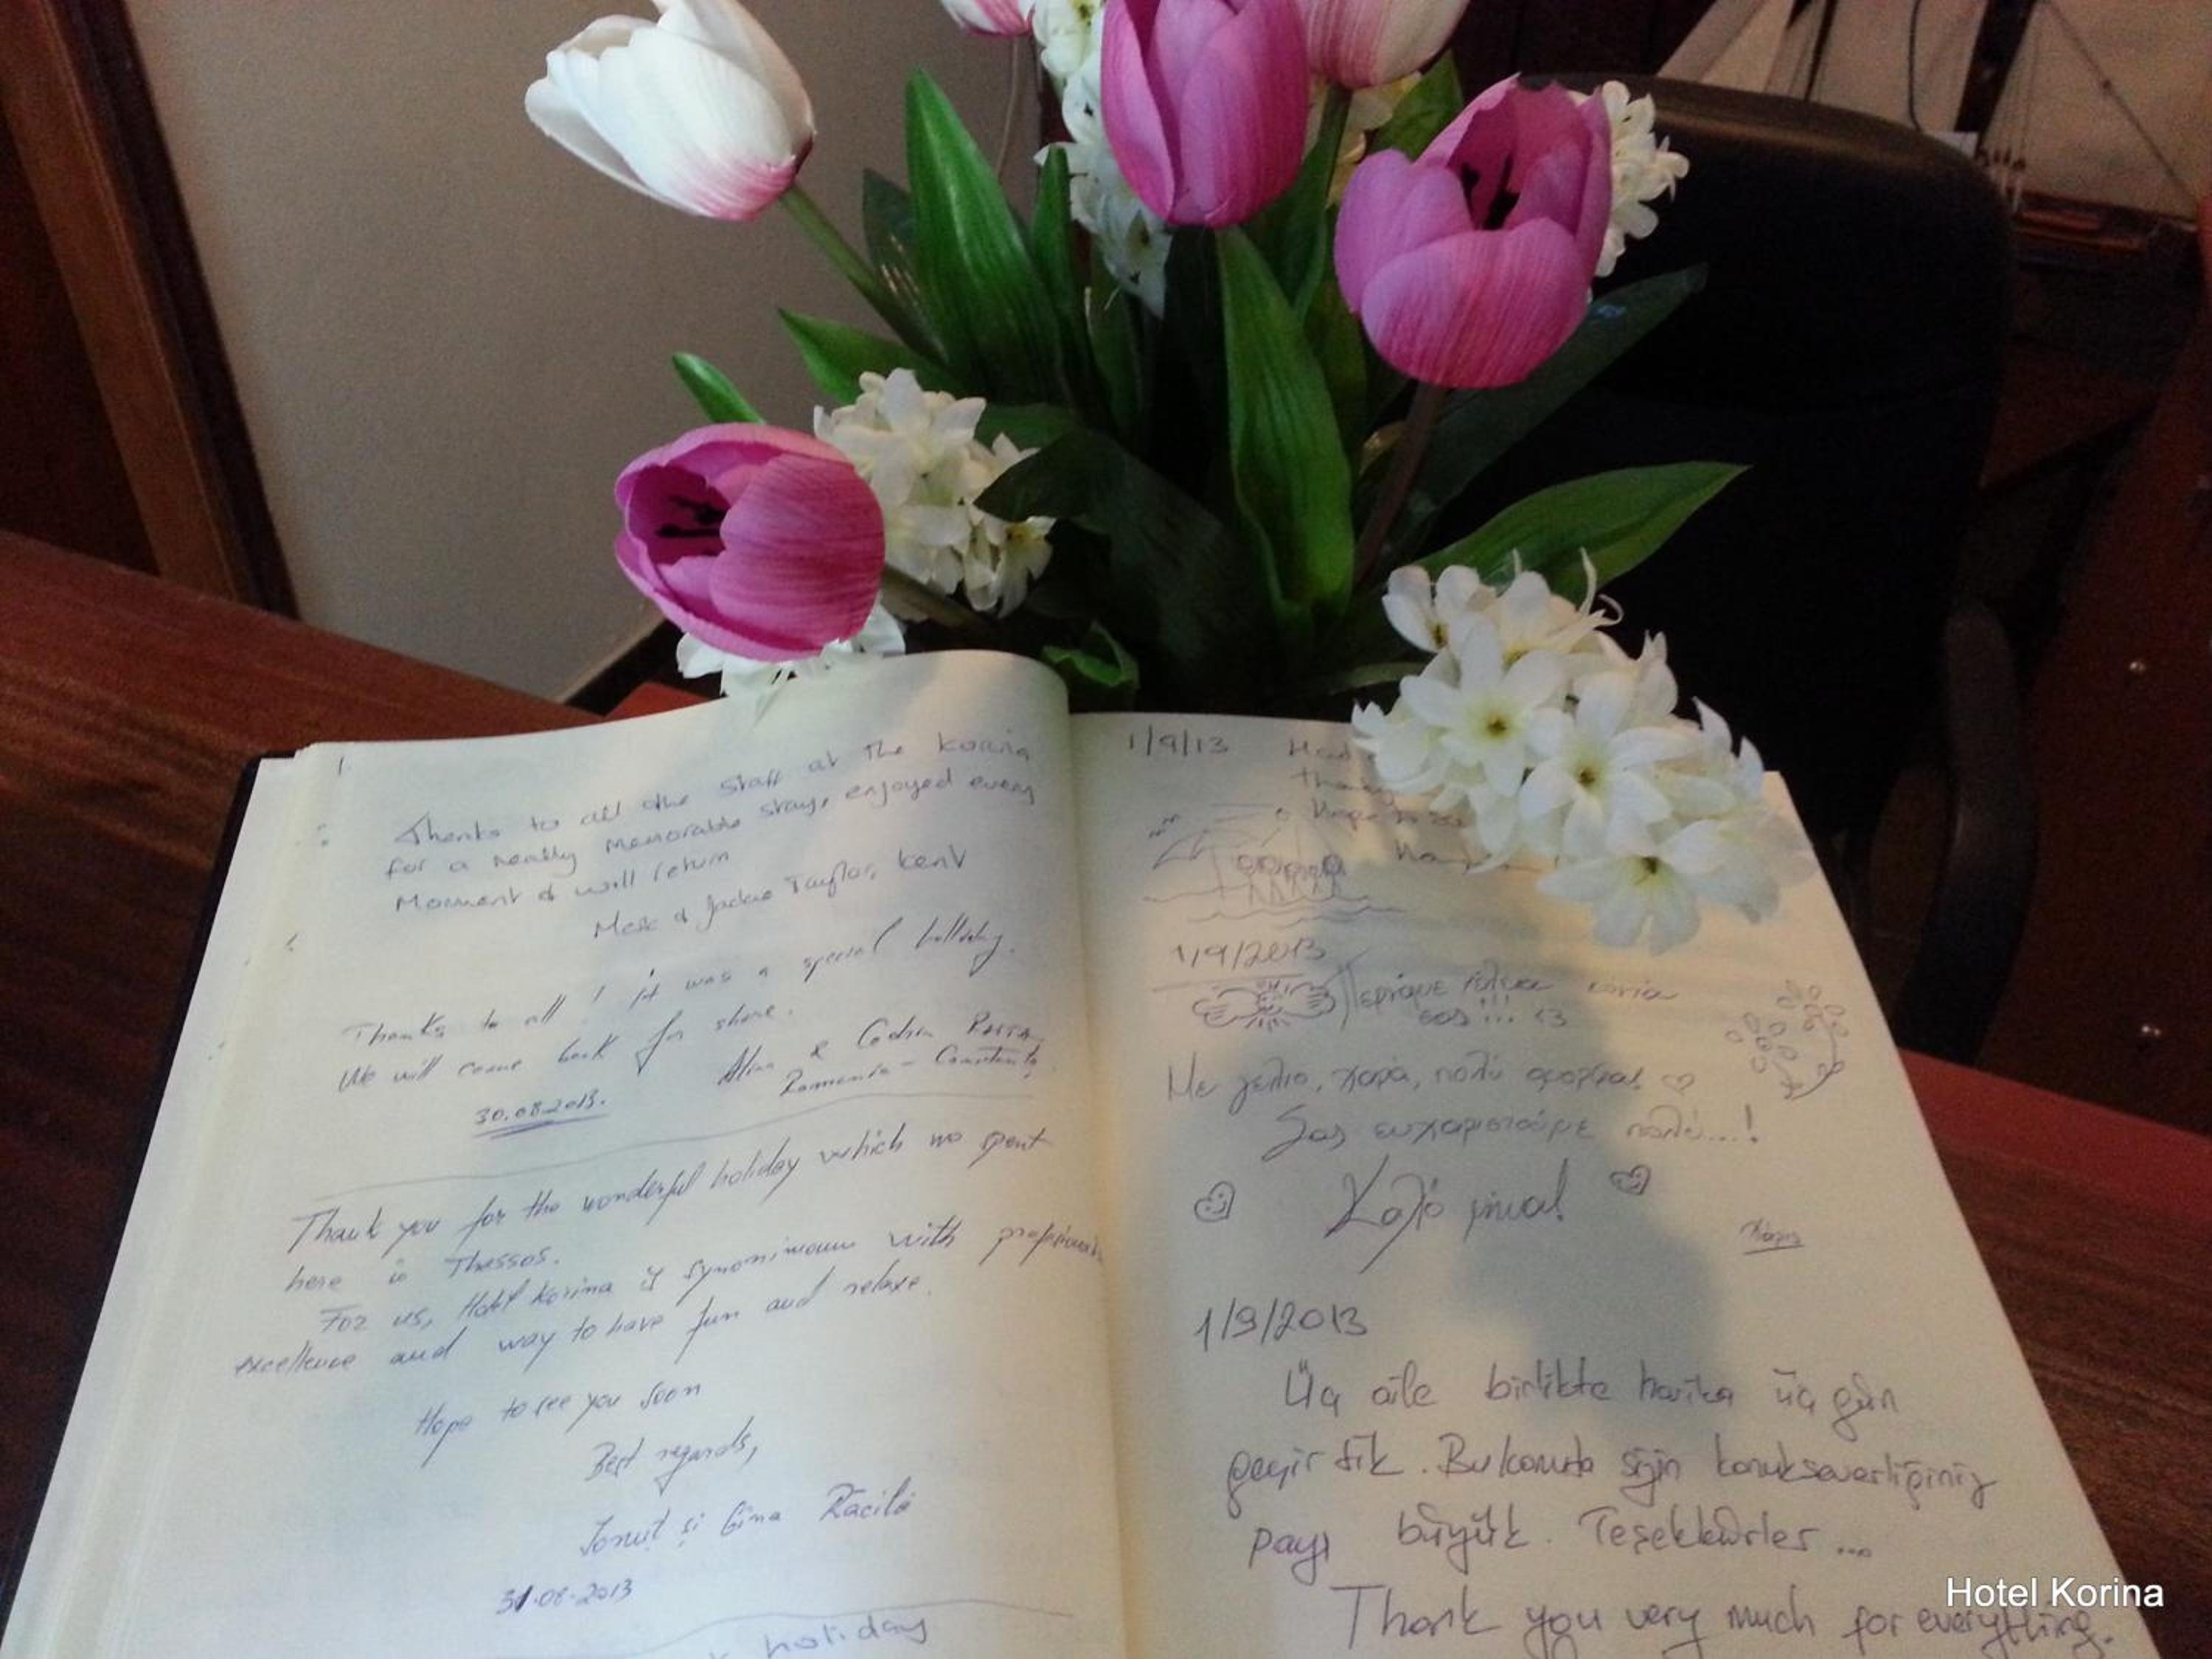 Thanks to all the staff at the Korina
for a really memorable stay, enjoyed every
Moment & will return
& Jackie Taylor, Kent
Thanks to all! it was a special holliday.
We will come back for shore.
Alina & Codrin
Romania - Constanta
30.08.2013.
Thank you for the wonderful holiday which we spent
here in Thassos.
For us, Hotel Korina is synonimoum with
excellence and way to have fun and relaxe.
Hope to see you soon
Best regards,
Ionuț și Gina Răcilă
31.08.2013
holiday
1/9/13
Hope to
1/9/2013
Περνάμε τέλεια
σας!!! <3
Με γέλιο, χαρά, πολύ
Σας ευχαριστούμε πολύ...!
Καλό μήνα!
1/9/2013
Üç aile birlikte harika üç gün
geçirdik. Bu konuda sizin konukseverliğiniz
payı büyük. Teşekkürler ...
Thank you very much for everything.
Hotel Korina